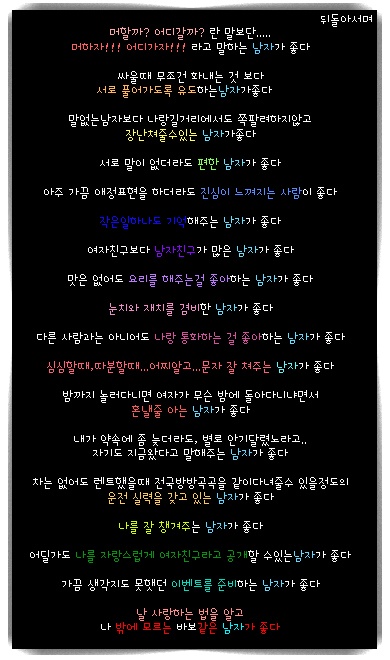 뒤돌아서며
머할까? 어디갈까? 란 말보단.....
머하자!!! 어디가자!!! 라고 말하는 남자가 좋다
싸울때 무조건 화내는 것 보다
서로 풀어가도록 유도하는남자가좋다
말없는남자보다 나랑길거리에서도 쪽팔려하지않고
장난쳐줄수있는 남자가좋다
서로 말이 없더라도 편한 남자가 좋다
아주 가끔 애정표현을 하더라도 진심이 느껴지는 사람이 좋다
작은일하나도 기억해주는 남자가 좋다
여자친구보다 남자친구가 많은 남자가 좋다
맛은 없어도 요리를 해주는걸 좋아하는 남자가 좋다
눈치와 재치를 겸비한 남자가 좋다
다른 사람과는 아니어도 나랑 통화하는 걸 좋아하는 남자가 좋다
심심할때,따분할때...어찌알고...문자 잘 쳐주는 남자가 좋다
밤까지 놀러다니면 여자가 무슨 밤에 돌아다니냐면서
혼낼줄 아는 남자가 좋다
내가 약속에 좀 늦더라도, 별로 안기달렸노라고..
자기도 지금왔다고 말해주는 남자가 좋다
차는 없어도 렌트했을때 전국방방곡곡을 같이다녀줄수 있을정도의
운전 실력을 갖고 있는 남자가 좋다
나를 잘 챙겨주는 남자가 좋다
어딜가도 나를 자랑스럽게 여자친구라고 공개할 수있는남자가 좋다
가끔 생각지도 못했던 이벤트를 준비하는 남자가 좋다
날 사랑하는 법을 알고
나 밖에 모르는 바보같은 남자가 좋다